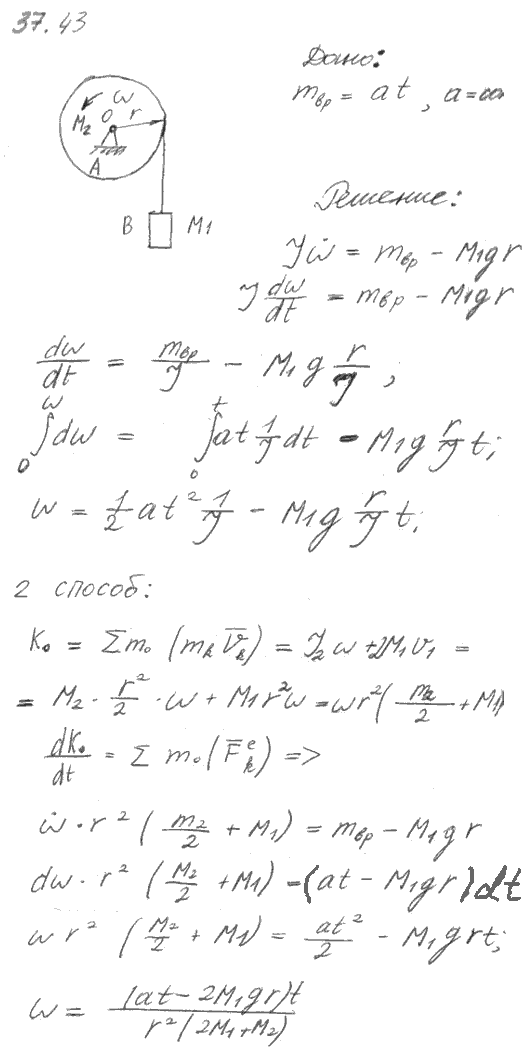 37.43
Дано:
m_вр = at, a=
ω
O
r
M₂
A
B M1
Решение:
Jω̇ = m_вр − M₁gr
J dω/dt = m_вр − M₁gr
dω/dt = m_вр/J − M₁g r/J ,
∫₀^ω dω = ∫₀^t at 1/J dt − M₁g r/J t;
ω = 1/2 at² 1/J − M₁g r/J t;
2 способ:
K₀ = Σm₀ (m_k V̄_k) = J₂ω + M₁v₁ =
= M₂ · r²/2 · ω + M₁r²ω = ωr²(m₂/2 + M₁)
dK₀/dt = Σ m₀(F̄_k^e) =>
ω̇ · r² (m₂/2 + M₁) = m_вр − M₁gr
dω · r² (M₂/2 + M₁) = (at − M₁gr)dt
ωr² (M₂/2 + M₁) = at²/2 − M₁grt;
ω = (at − 2M₁gr)t / r²(2M₁+M₂)